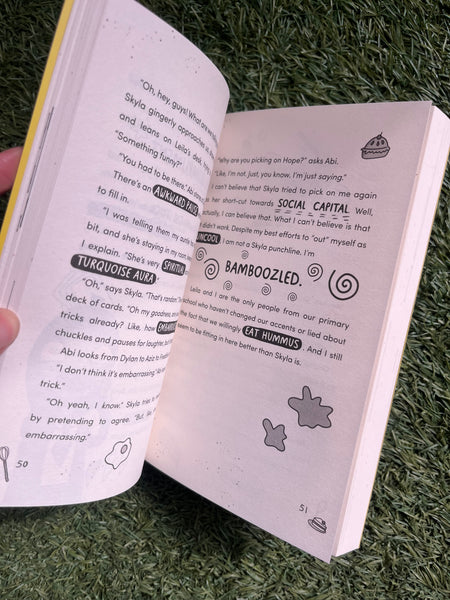 "Oh, hey, guys! What are
Skyla gingerly approaches
and leans on Leila's desk,
"Something funny?"
"You had to be there."
There's an AWKWARD PAUSE
to fill in.
"I was telling them my
bit, and she's staying in my room,
I explain. "She's very SPIRITUAL
TURQUOISE AURA
"Oh," says Skyla. "That's random."
deck of cards. "Oh my goodness,
tricks already? Like, how
chuckles and pauses for laughter, but
Abi looks from Dylan to Aziz to
"I don't think it's embarrassing,"
trick."
"Oh yeah, I know." Skyla tries to
by pretending to agree. "But, like,
embarrassing."
50
"Why are you picking on Hope?" asks Abi.
"Like, I'm not, just, you know, I'm just saying."
I can't believe that Skyla tried to pick on me again
as her short-cut towards SOCIAL CAPITAL. Well,
actually, I can believe that. What I can't believe is that
it didn't work. Despite my best efforts to "out" myself as
UNCOOL I am not a Skyla punchline. I'm
BAMBOOZLED.
Leila and I are the only people from our primary
school who haven't changed our accents or lied about
the fact that we willingly EAT HUMMUS. And I still
seem to be fitting in here better than Skyla is.
51